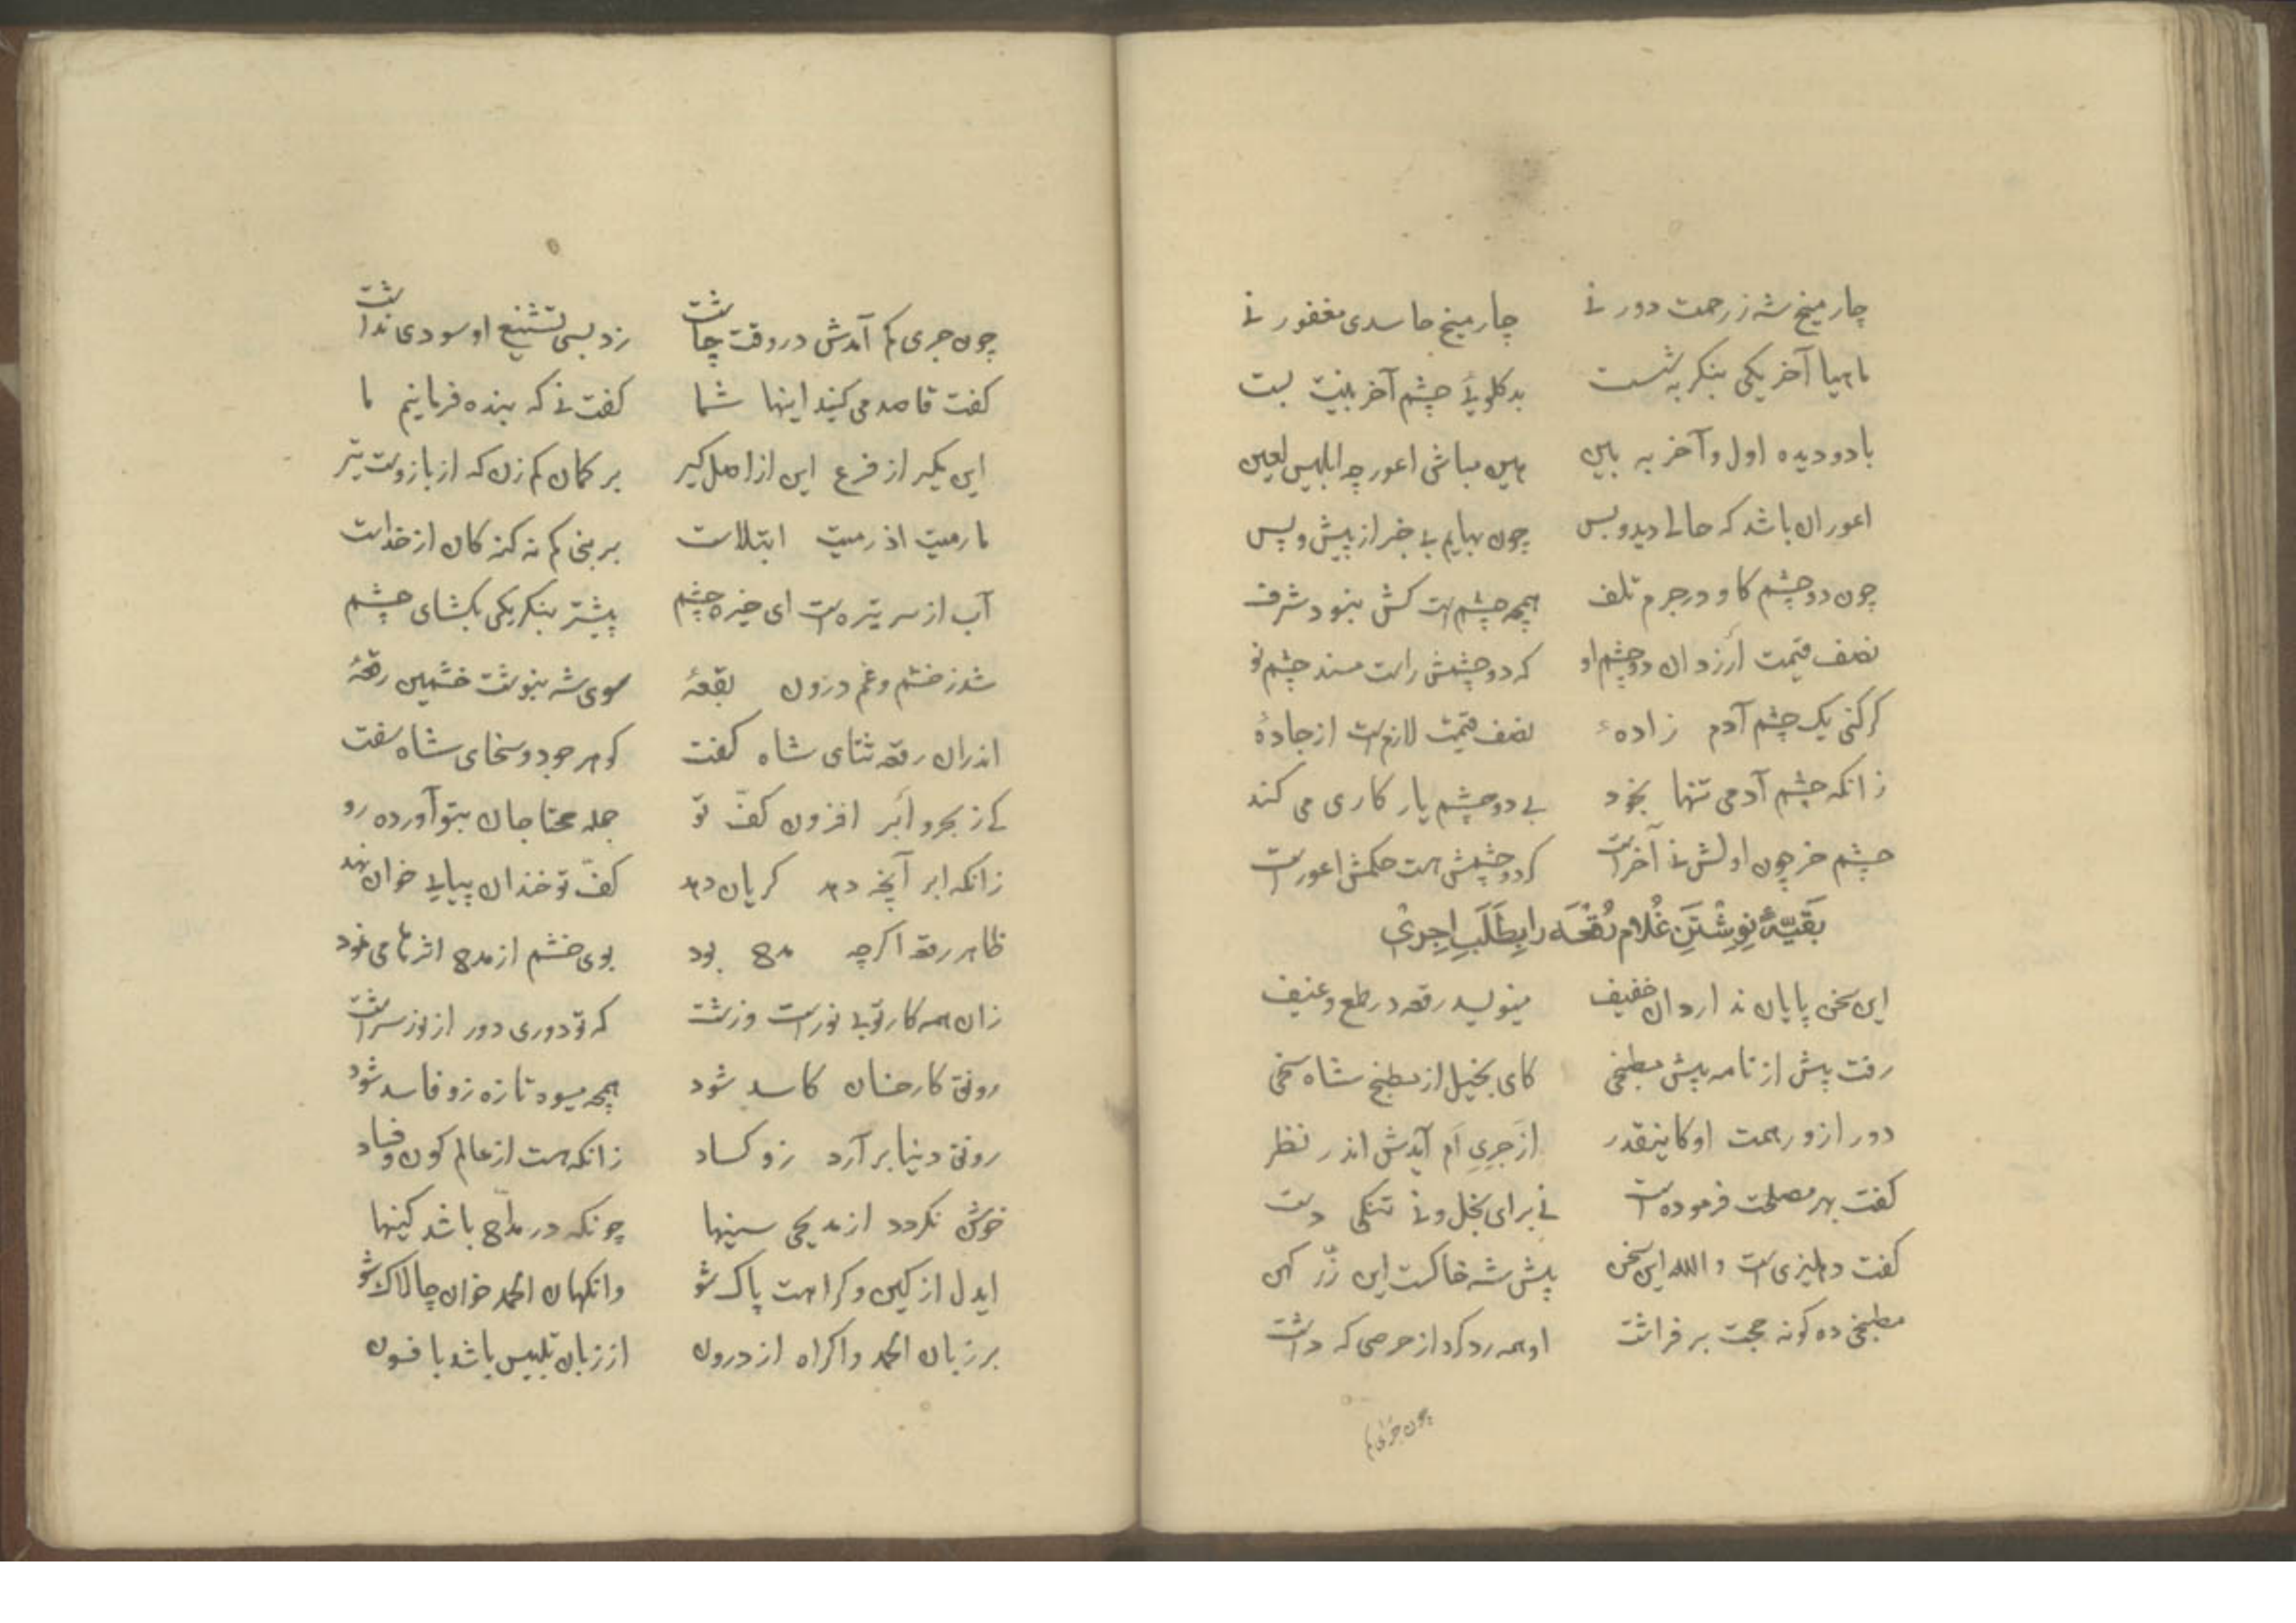 چار میخ شه ز رحمت دور نے چار میخ حاسدی مغفور نے
ماهیا آخر یکی بنکر بشست بد کلویے چشم آخر بینت بست
با دو دیده اول و آخر به بین هین مباش اعور چه ابلیس لعین
اعور ان باشد که حالے دید و بس چون بهایم بے خبر از پیش و پس
چون دو چشم کاو در جرم تلف همچه چشمست کش نبود شرف
نصف قیمت ارزد ان دو چشم او که دو چشمش راست مسند چشم تو
کر کنی یک چشم آدم زادهٔ نصف قیمت لازمست از جادهٔ
زانکه چشم آدمی تنها بخود بے دو چشم یار کاری می کند
چشم خر چون اولش نے آخرست کر دو چشمش هست حکمش اعورست
بَقَیّهٔ نِوِشْتَنِ غُلام رُقْعَه را بِطَلَبِ اِجرِیْ
این سخن پایان ندارد ان خفیف مینویسد رقعه در طمع و عنیف
رفت پیش از نامه پیش مطبخی کای بخیل از مطبخ شاه سخی
دور ازو و ز همت او کاینقدر از جری ام آیدش اندر نظر
کفت بهر مصلحت فرموده است نے برای بخل و نے تنکی دست
کفت دهلیزی است و الله این سخن پیش شه خاکست این زر کهن
مطبخی ده کونه حجت بر فراشت او همه رد کرد از حرصی که داشت
چون جری کم
چون جری کم آمدش در وقت چاشت زد بسی تشنیع او سودی نداشت
کفت قاصد می کنید اینها شما کفت نے که بنده فرمانیم ما
این مکیر از فرع این از اصل کیر بر کمان کم زن که از بازوست تیر
ما رمیت اذ رمیت ابتلاست بر نبی کم نه کنه کان از خداست
آب از سر تیره است ای خیره چشم پیشتر بنکر یکی بکشای چشم
شد ز خشم و غم درون بقعهٔ سوی شه بنوشت خشمین رقعهٔ
اندران رقعه ثنای شاه کفت کوهر جود و سخای شاه سفت
کے ز بحر و ابر افزون کفّ تو جمله محتاجان بتو آورده رو
زانکه ابر آنچه دهد کریان دهد کفّ تو خندان پیاپے خوان نهد
ظاهر رقعه اکرچه مدح بود بوی خشم از مدح اثرها می نمود
زان همه کار تو بے نورست و زشت که تو دوری دور از نور سرشت
رونق کار خسان کاسد شود همچه میوه تازه زو فاسد شود
رونق دنیا بر آرد زو کساد زانکه هست از عالم کون و فساد
خوش نکردد از مدیحی سینها چونکه در مدّاح باشد کینها
ایدل از کین و کراهت پاک شو وانکهان الحمد خوان چالاک شو
بر زبان الحمد و اکراه از درون از زبان تلبیس باشد با فسون